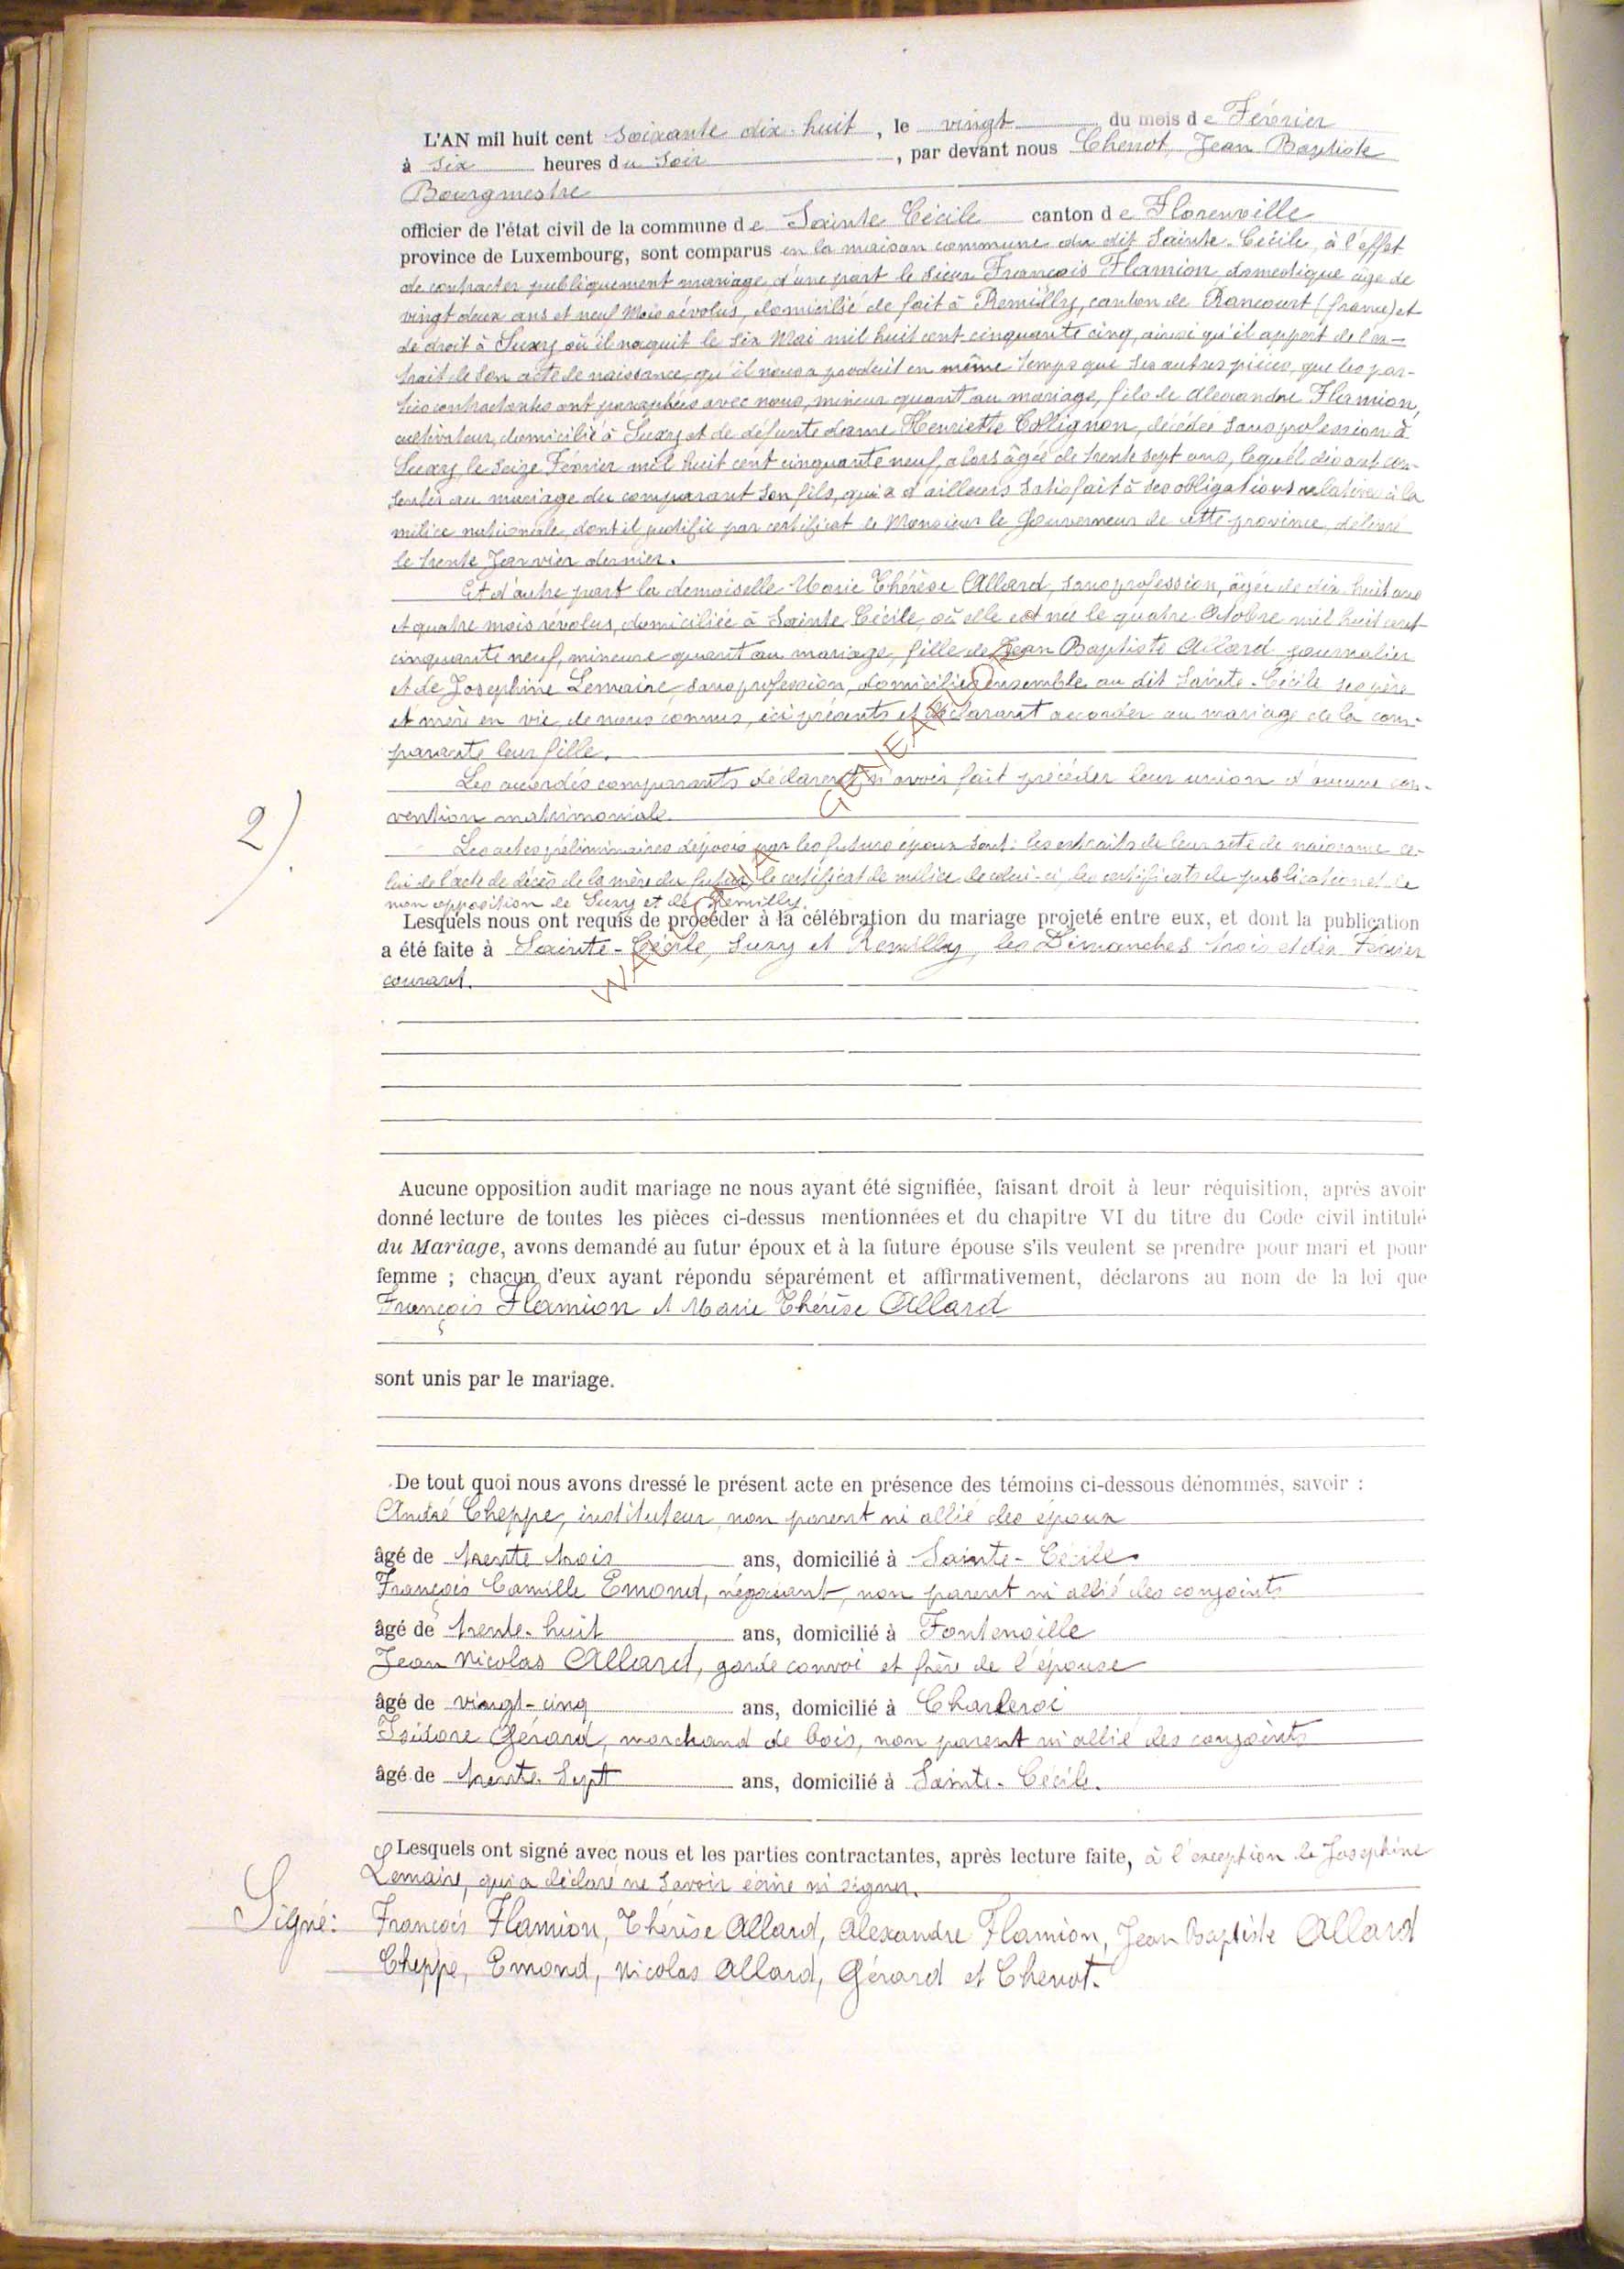 L'AN mil huit cent soixante dix-huit, le vingt du mois de Février
à six heures du soir, par devant nous Chenot, Jean Baptiste
Bourgmestre
officier de l'état civil de la commune de Sainte Cécile canton de Florenville
province de Luxembourg, sont comparus en la maison commune du dit Sainte-Cécile, à l'effet
de contracter publiquement mariage, d'une part le sieur François Flamion domestique âgé de
vingt deux ans et neuf mois révolus, domicilié de fait à Remilly, canton de Rancourt (france) et
de droit à Suxy où il naquit le six Mai mil huit cent cinquante cinq, ainsi qu'il appert de l'ex-
trait de son acte de naissance, qu'il nous a produit en même temps que ses autres pièces, que les par-
ties contractantes ont paraphées avec nous, mineur quant au mariage, fils de Alexandre Flamion,
cultivateur, domicilié à Suxy et de défunte dame Henriette Collignon, décédée sans profession à
Suxy, le seize Février mil huit cent cinquante neuf, alors âgée de trente sept ans, lequel disant con-
sentir au mariage du comparant son fils, qui a d'ailleurs satisfait à ses obligations relatives à la
milice nationale, dont il justifie par certificat de Monsieur le Gouverneur de cette province, délivré
le trente Janvier dernier.
Et d'autre part la demoiselle Marie Thérèse Allard, sans profession, âgée de dix huit ans
et quatre mois révolus, domiciliée à Sainte Cécile, où elle est née le quatre Octobre mil huit cent
cinquante neuf, mineure quant au mariage, fille de Jean Baptiste Allard journalier
et de Josephine Lemaire, sans profession, domiciliés ensemble au dit Sainte-Cécile ses père
et mère en vie, de nous connus, ici présents et déclarant accorder au mariage de la com-
parante leur fille.
Les accordés comparants déclarent n'avoir fait précéder leur union d'aucune con-
vention matrimoniale.
2).
Les actes préliminaires déposés par les futurs époux sont: les extraits de leur acte de naissance ce-
lui de l'acte de décès de la mère du futur, le certificat de milice de celui-ci, les certificats de publication et de
non opposition de Suxy et de Remilly.
Lesquels nous ont requis de procéder à la célébration du mariage projeté entre eux, et dont la publication
a été faite à Sainte-Cécile, Suxy et Remilly, les Dimanches trois et dix Février
courant.
Aucune opposition audit mariage ne nous ayant été signifiée, faisant droit à leur réquisition, après avoir
donné lecture de toutes les pièces ci-dessus mentionnées et du chapitre VI du titre du Code civil intitulé
du Mariage, avons demandé au futur époux et à la future épouse s'ils veulent se prendre pour mari et pour
femme ; chacun d'eux ayant répondu séparément et affirmativement, déclarons au nom de la loi que
François Flamion et Marie Thérèse Allard
sont unis par le mariage.
De tout quoi nous avons dressé le présent acte en présence des témoins ci-dessous dénommés, savoir :
André Cheppe, instituteur, non parent ni allié des époux
âgé de trente trois ans, domicilié à Sainte-Cécile
François Camille Emond, négociant, non parent ni allié des conjoints
âgé de trente-huit ans, domicilié à Fontenoille
Jean Nicolas Allard, garde convoi et frère de l'épouse
âgé de vingt-cinq ans, domicilié à Charleroi
Isidore Gérard, marchand de bois, non parent ni allié des conjoints
âgé de trente-sept ans, domicilié à Sainte-Cécile.
Lesquels ont signé avec nous et les parties contractantes, après lecture faite, à l'exception de Josephine
Lemaire, qui a déclaré ne savoir écrire ni signer.
Signé: François Flamion, Thérèse Allard, Alexandre Flamion, Jean Baptiste Allard
Cheppe, Emond, Nicolas Allard, Gérard et Chenot.